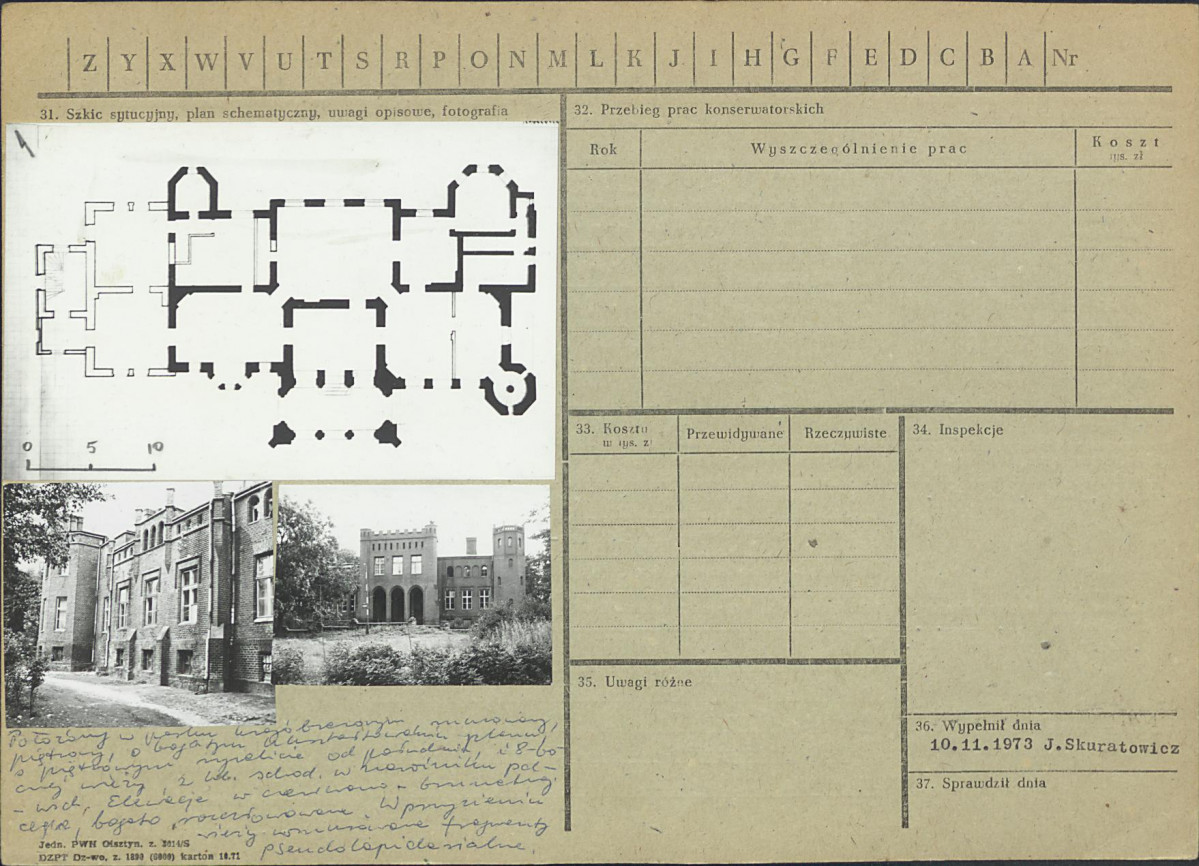 Z Y X W V U T S R P O N M L K J I H G F E D C B A Nr
31. Szkic sytucyjny, plan schematyczny, uwagi opisowe, fotografia
1
0 5 10
Położony w parku krajobrazowym, murowany,
piętrowy, o bogatym ukształtowaniu planu,
o piętrowym ryzalicie od południa, i 8-bo
cznej wieży, z kl. schod. w narożniku poł-
-wsch. Elewacje w czerwono - brunatnej
cegle, bogato rozczłonkowane. W przyziemiu
wieży wmurowane fragmenty
pseudolapidarialne.
Jedn. PWH Olsztyn, z. 3014/S
DZPT Dz-wo, z. 1890 (6000) karton 10.71
32. Przebieg prac konserwatorskich
Rok Wyszczególnienie prac Koszt
tys. zł
33. Koszty
w tys. zł
Przewidywane Rzeczywiste
34. Inspekcje
35. Uwagi różne
36. Wypełnił dnia
10.11.1973 J.Skuratowicz
37. Sprawdził dnia